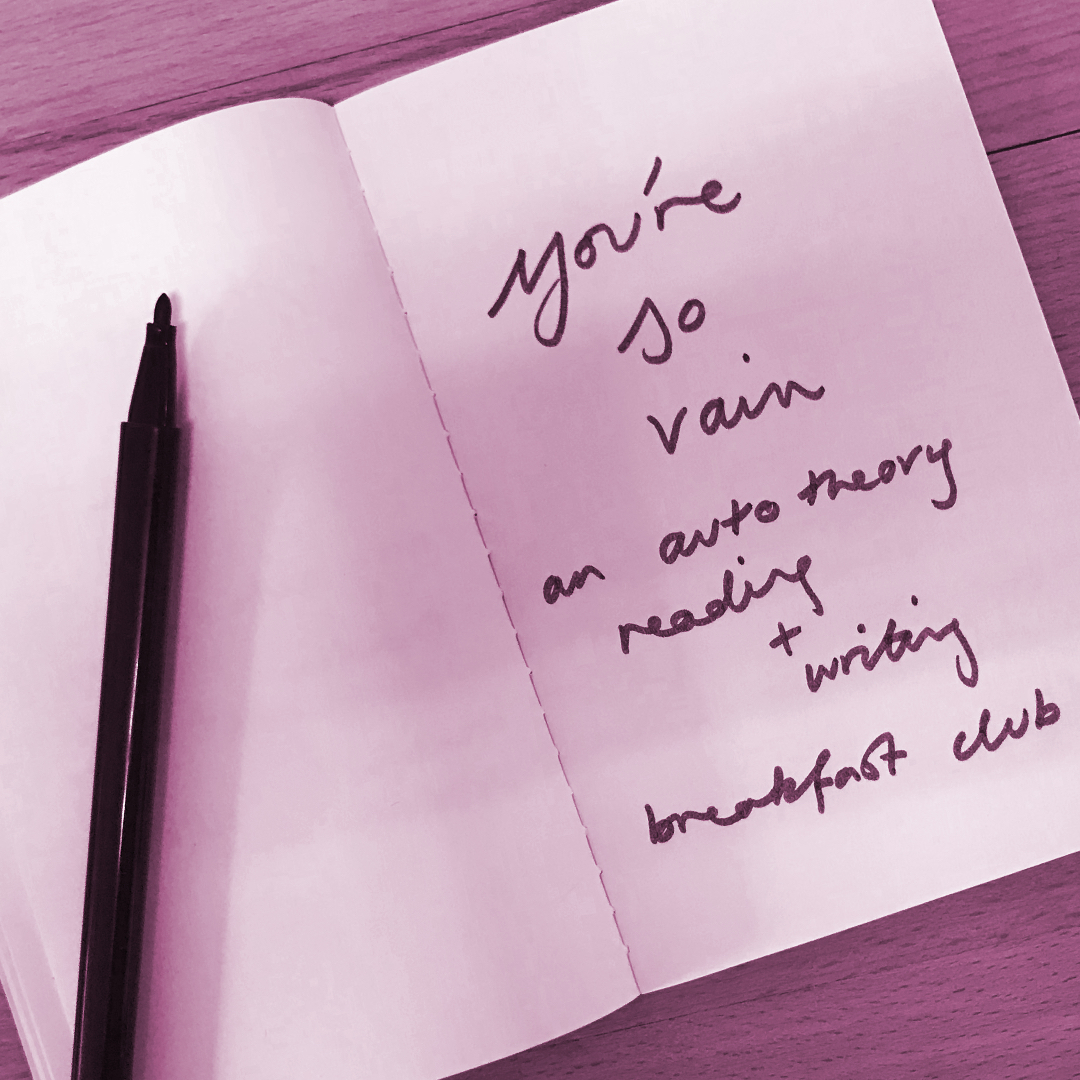 you're
so
vain
an autotheory
reading
+ writing
breakfast club